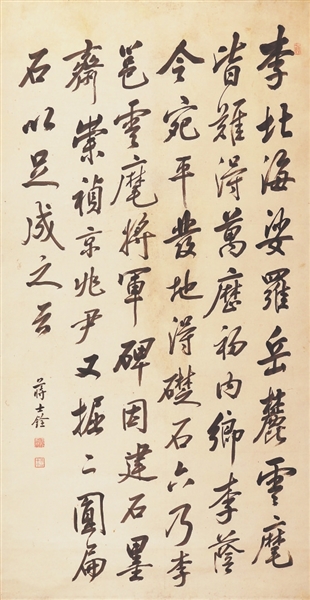 李北海娑羅岳麓雲麾
皆難得萬歷初內鄉李蔭
令宛平發地得礎石六乃李
邕雲麾將軍碑因建石墨
齋崇禎京兆尹又掘二圓扁
石以足成之云
蔣士銓